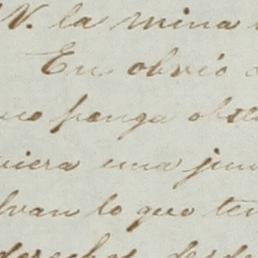 V. la mina
En obvio
no ponga obst
viera una jun
lvan lo que ten
derechos desde